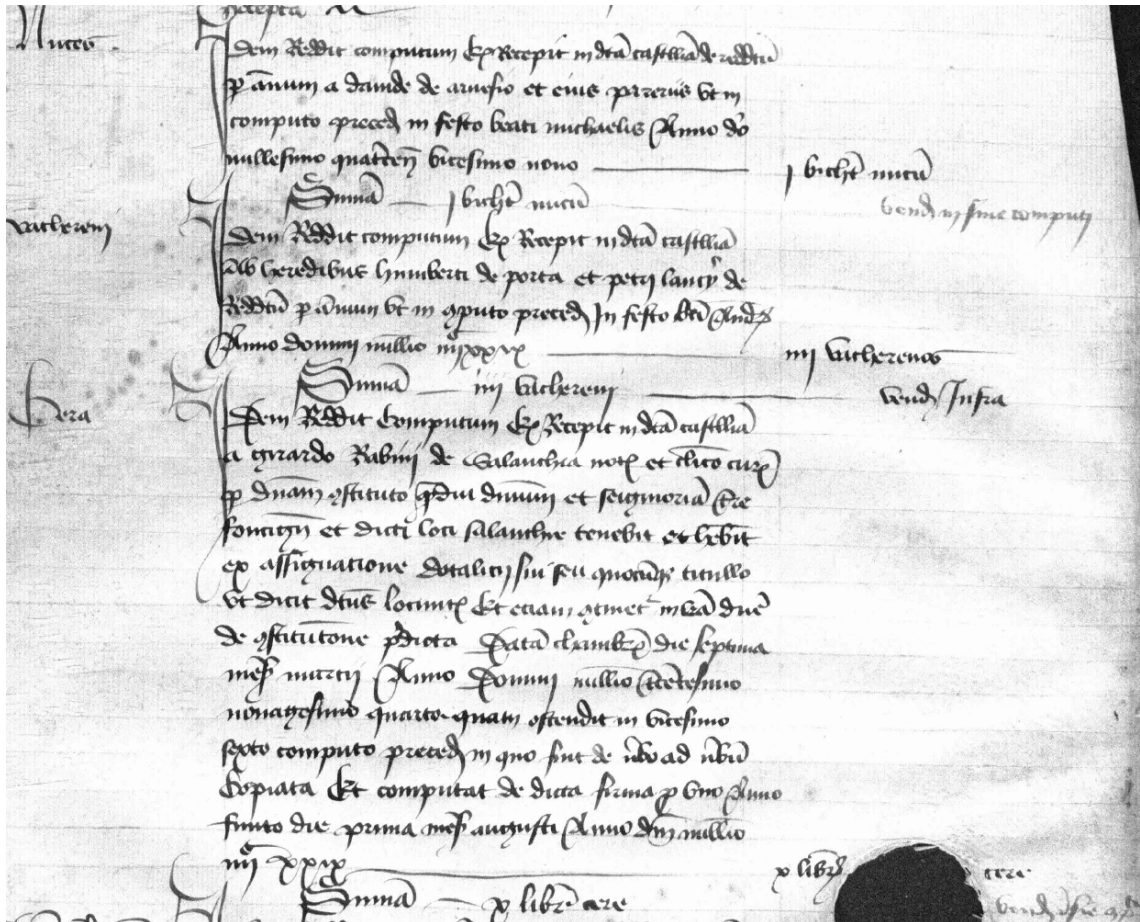 recepta
Nuces
Idem Reddit computum q Recepit in dca castllia de redditu
p annum a dauide de aruesio et eius parerijs vt in
computo preced in festo beati michaelis Anno do
millesimo quatcen vicesimo nono j bichet nucu
Suma j bichet nucu
vend in fine computi
vachereni
Idem Reddit computum q Recepit in dca castllia
ab heredibus humberti de porta et petri de
Redditu p annum vt in oputo preced In festo bti Andr
Anno domini millio iiij xxix iiij vacherenos
Suma iiij vachereni vend Infra
Cera
Idem Reddit Computum q Recepit in dca castllia
a girardo Rabuti de Salanchia not et clico cur
p dnam ostituto qdiu dnium et seignioria tre
foucign et dicti loci salanchie tenebit et hebit
ex assignatione dotalicij sui seu quocuq titullo
vt dicit dcus locuint Et eciam in lra dne
de ostitutone pdicta Data chamb die septima
mens marcij Anno Domini millio trecetesimo
nonagesimo quarto quam ostendit in vicesimo
sexto computo preced in quo sint de vbo ad vbu
Copiata Et computat de dicta firma p vno Anno
finito die prima mens augusti Anno dni millio
iiij xxix x libr cere
Suma x libr cere
vend